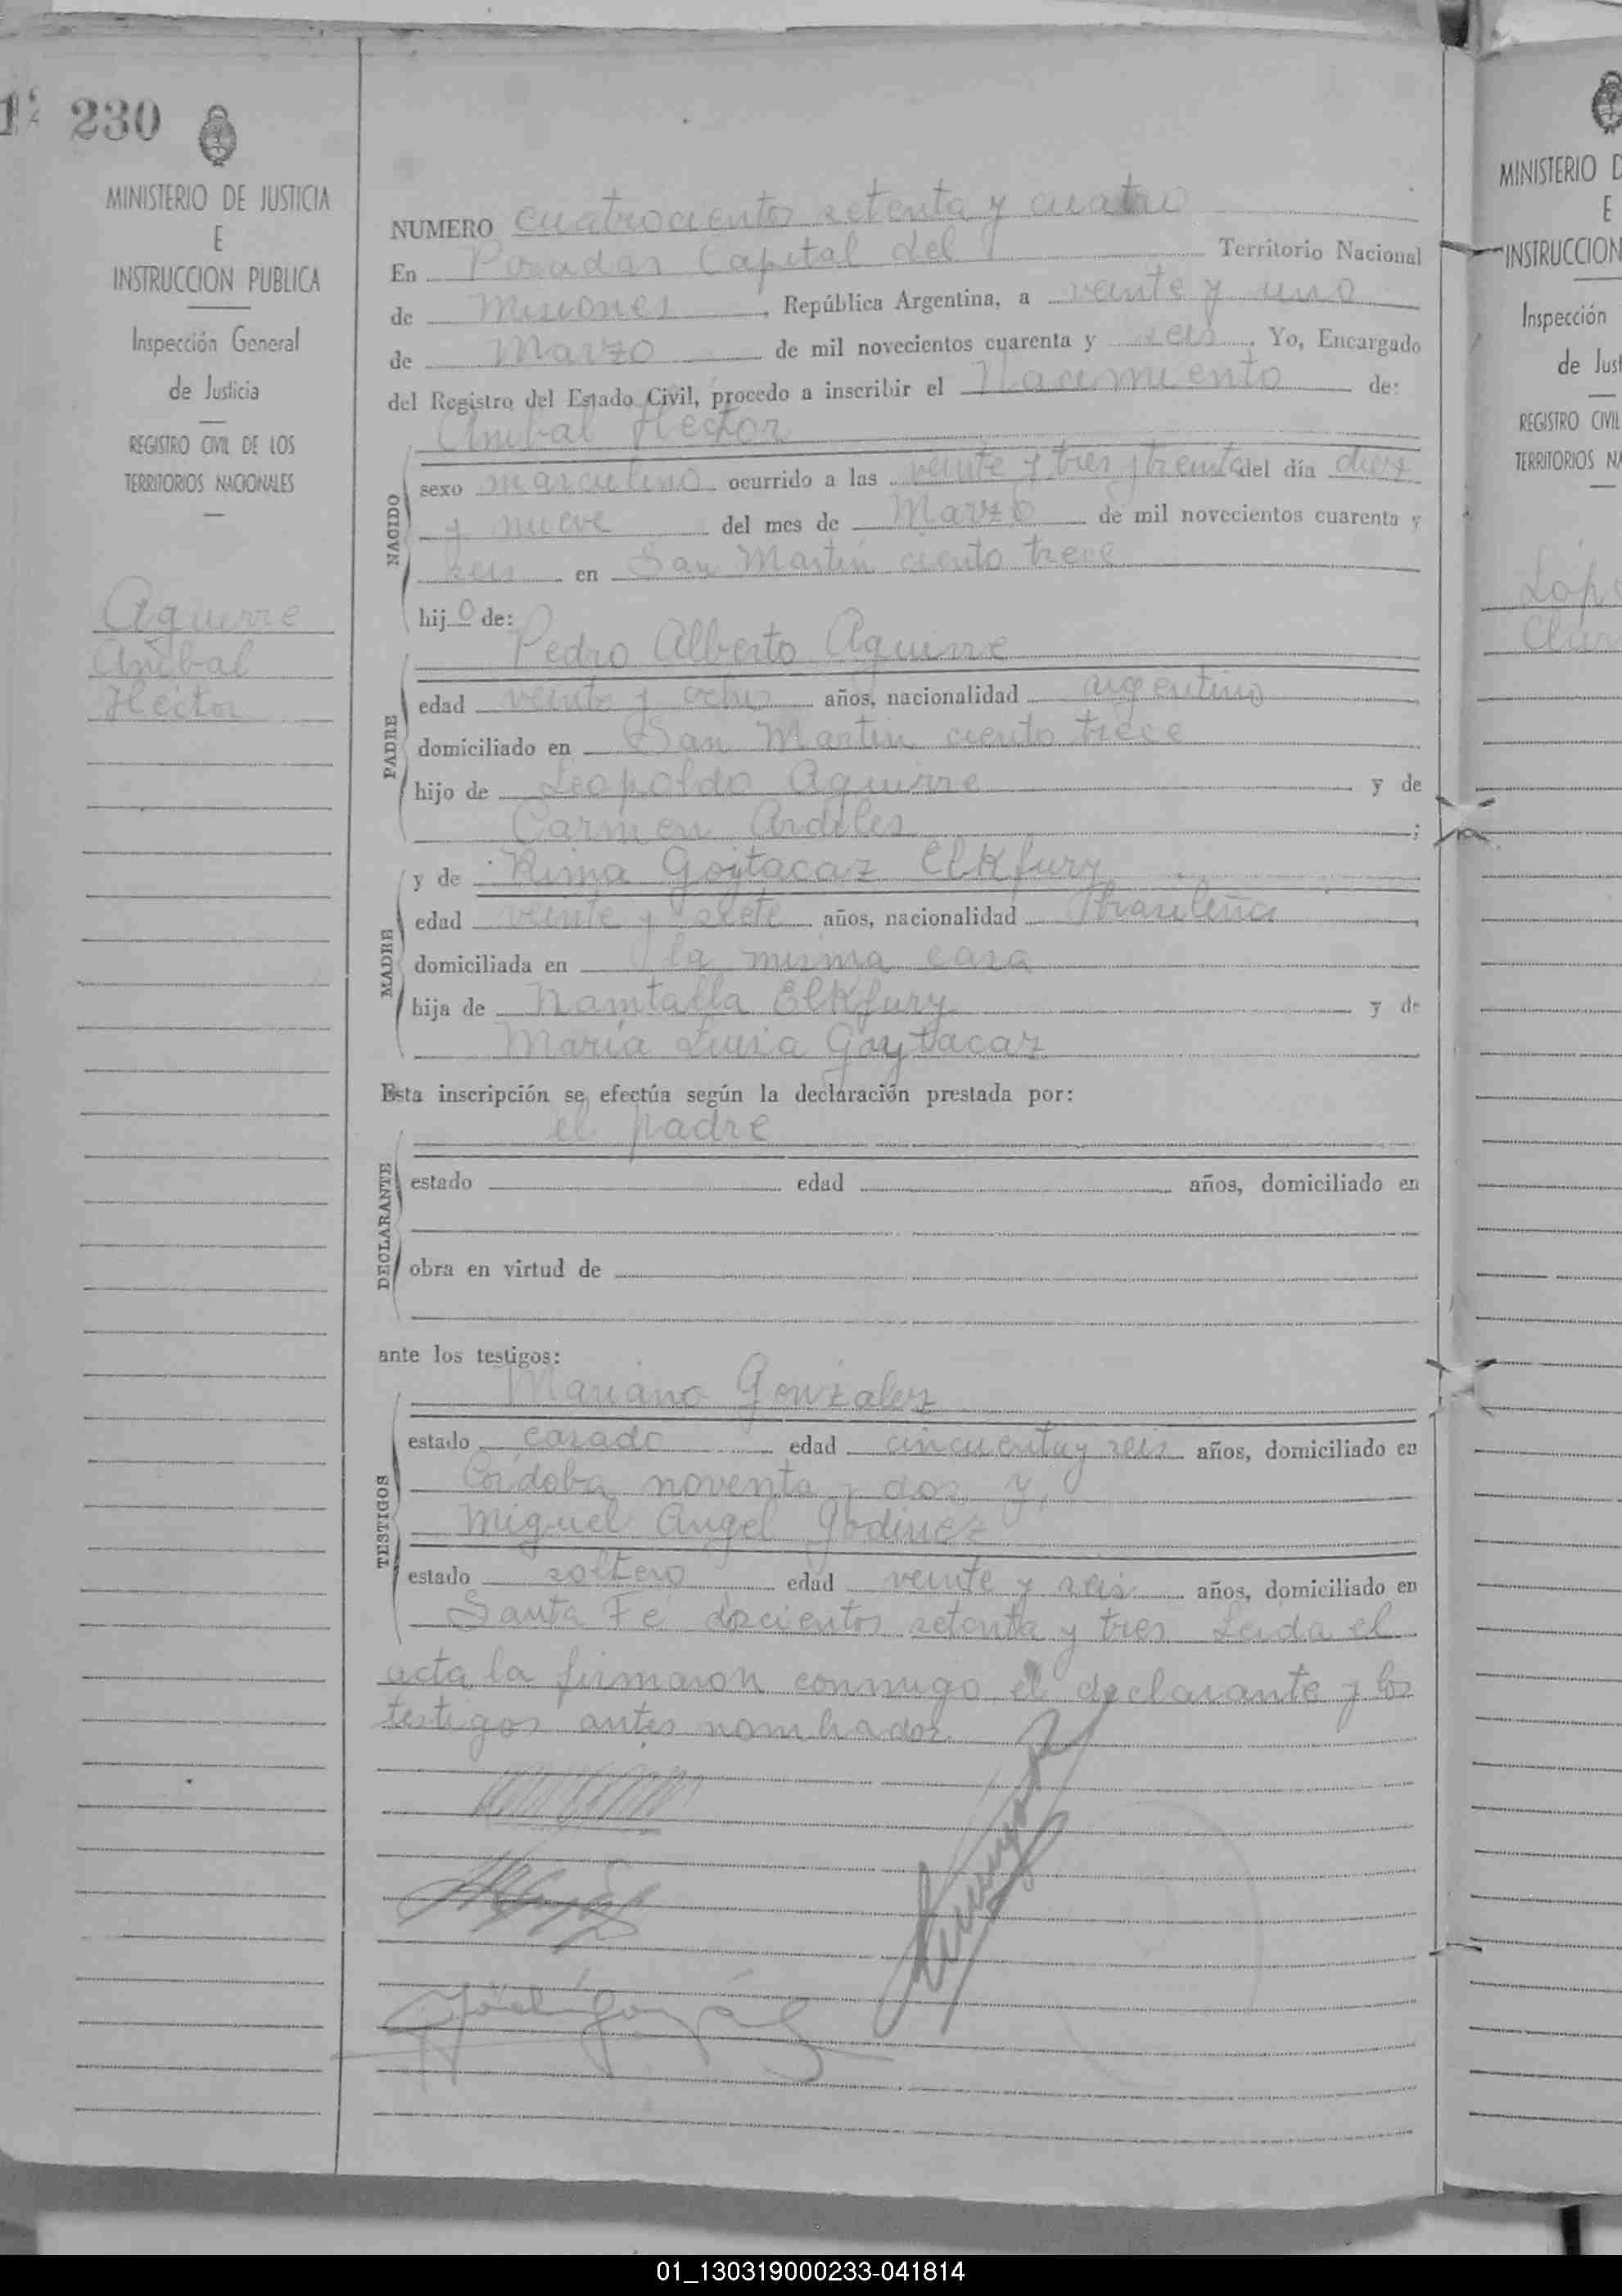 230
MINISTERIO DE JUSTICIA
E
INSTRUCCION PUBLICA
Inspección General
de Justicia
REGISTRO CIVIL DE LOS
TERRITORIOS NACIONALES
Aguirre
Anibal
Hector
NUMERO cuatrocientos setenta y cuatro
En Posadas Capital del Territorio Nacional
de Misiones, República Argentina, a veinte y uno
de Marzo de mil novecientos cuarenta y seis. Yo, Encargado
del Registro del Estado Civil, procedo a inscribir el Nacimiento de:
Anibal Hector
NACIDO
sexo masculino ocurrido a las veinte y tres y treinta del día diez
y nueve del mes de Marzo de mil novecientos cuarenta y
seis en San Martin ciento trece
hijo de:
PADRE
Pedro Alberto Aguirre
edad veinte y ocho años, nacionalidad argentino
domiciliado en San Martin ciento trece
hijo de Leopoldo Aguirre y de
Carmen Ardiles;
MADRE
y de Rima Goytacaz Elkfury
edad veinte y siete años, nacionalidad brasileña
domiciliada en la misma casa
hija de Namtalla Elkfury y de
María Luisa Goytacaz
Esta inscripción se efectúa según la declaración prestada por:
el padre
DECLARANTE
estado edad años, domiciliado en
obra en virtud de
ante los testigos:
TESTIGOS
Mariano Gonzalez
estado casado edad cincuenta y seis años, domiciliado en
Córdoba noventa y dos y
Miguel Angel Godinez
estado soltero edad veinte y seis años, domiciliado en
Santa Fe doscientos setenta y tres Leida el
acta la firmaron conmigo el declarante y los
testigos antes nombrados
MINISTERIO D
E
INSTRUCCION
Inspección
de Just
REGISTRO CIVIL
TERRITORIOS NA
01_130319000233-041814